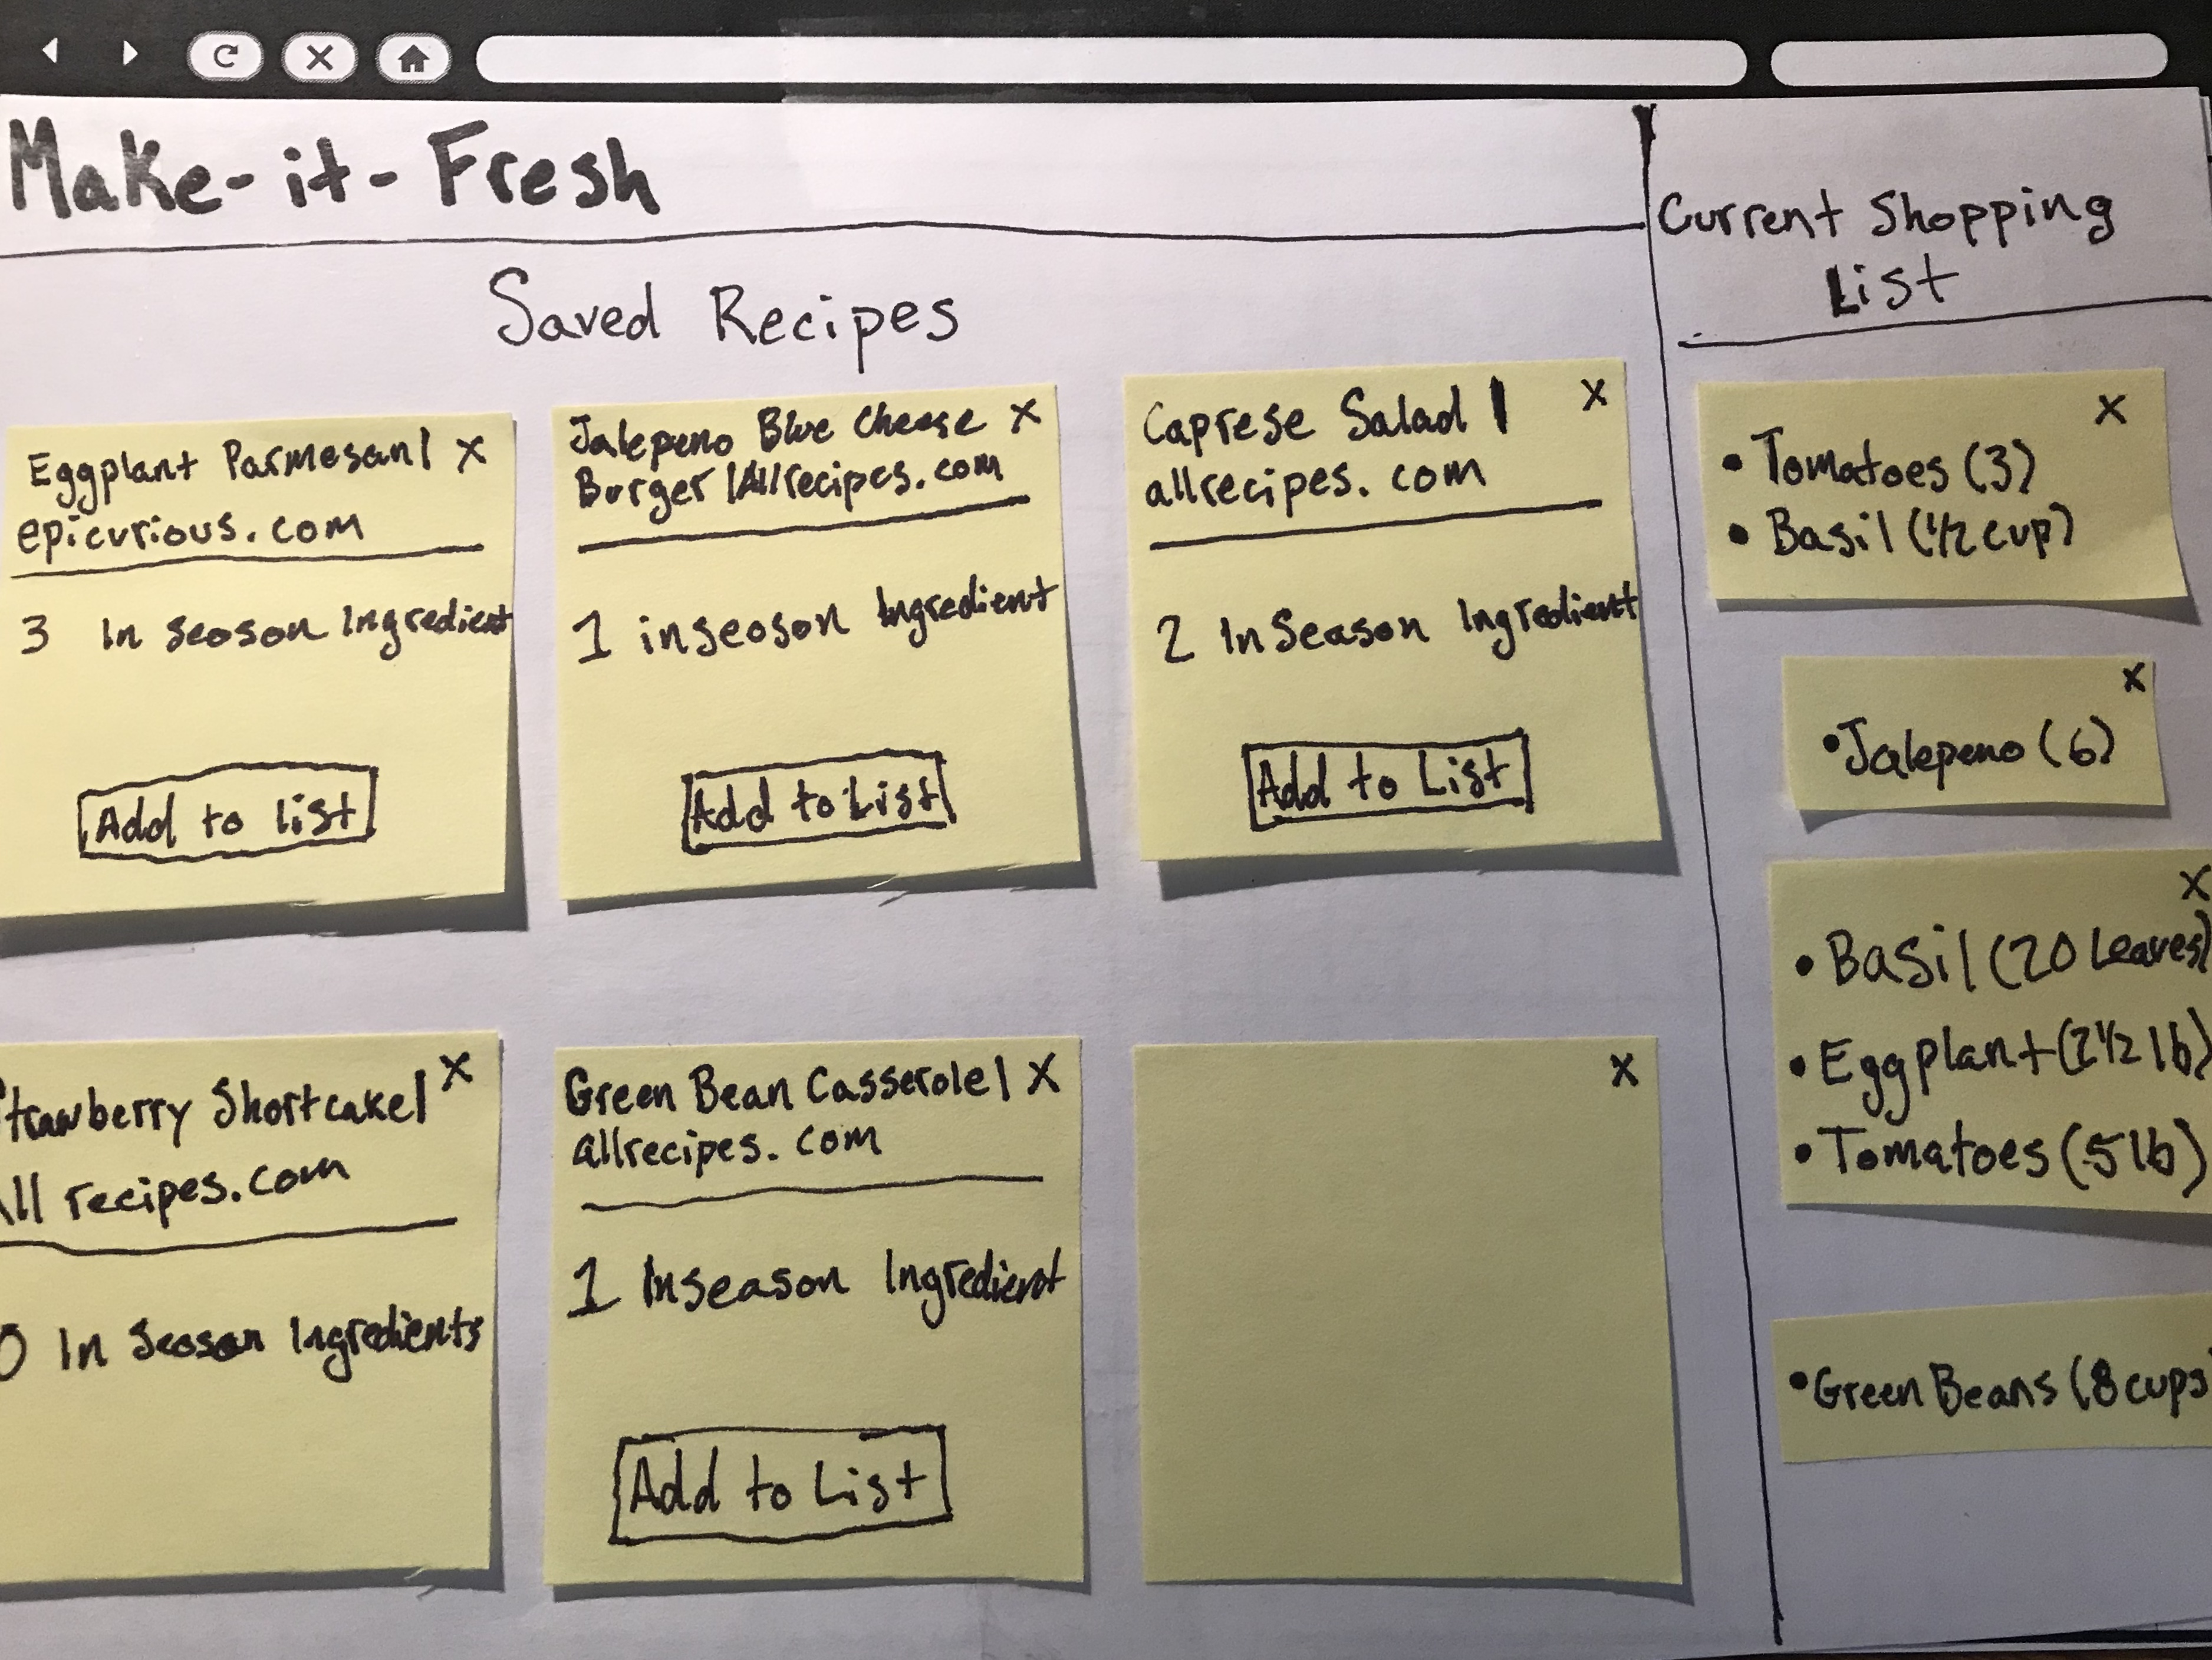 Make-it-Fresh
Saved Recipes
Eggplant Parmesan| X
epicurious.com
3 In season Ingredient
Add to list
Jalepeno Blue Cheese X
Burger |Allrecipes.com
1 inseason Ingredient
Add to List
Caprese Salad | X
allrecipes.com
2 InSeason Ingredient
Add to List
trawberry Shortcake| X
All recipes.com
0 In Season Ingredients
Green Bean Casserole| X
allrecipes.com
1 Inseason Ingredient
Add to List
X
Current Shopping
List
X
• Tomatoes (3)
• Basil (1/2 cup)
X
• Jalepeno (6)
X
• Basil (20 Leaves)
• Eggplant (2 1/2 lb)
• Tomatoes (5 lb)
• Green Beans (8 cups